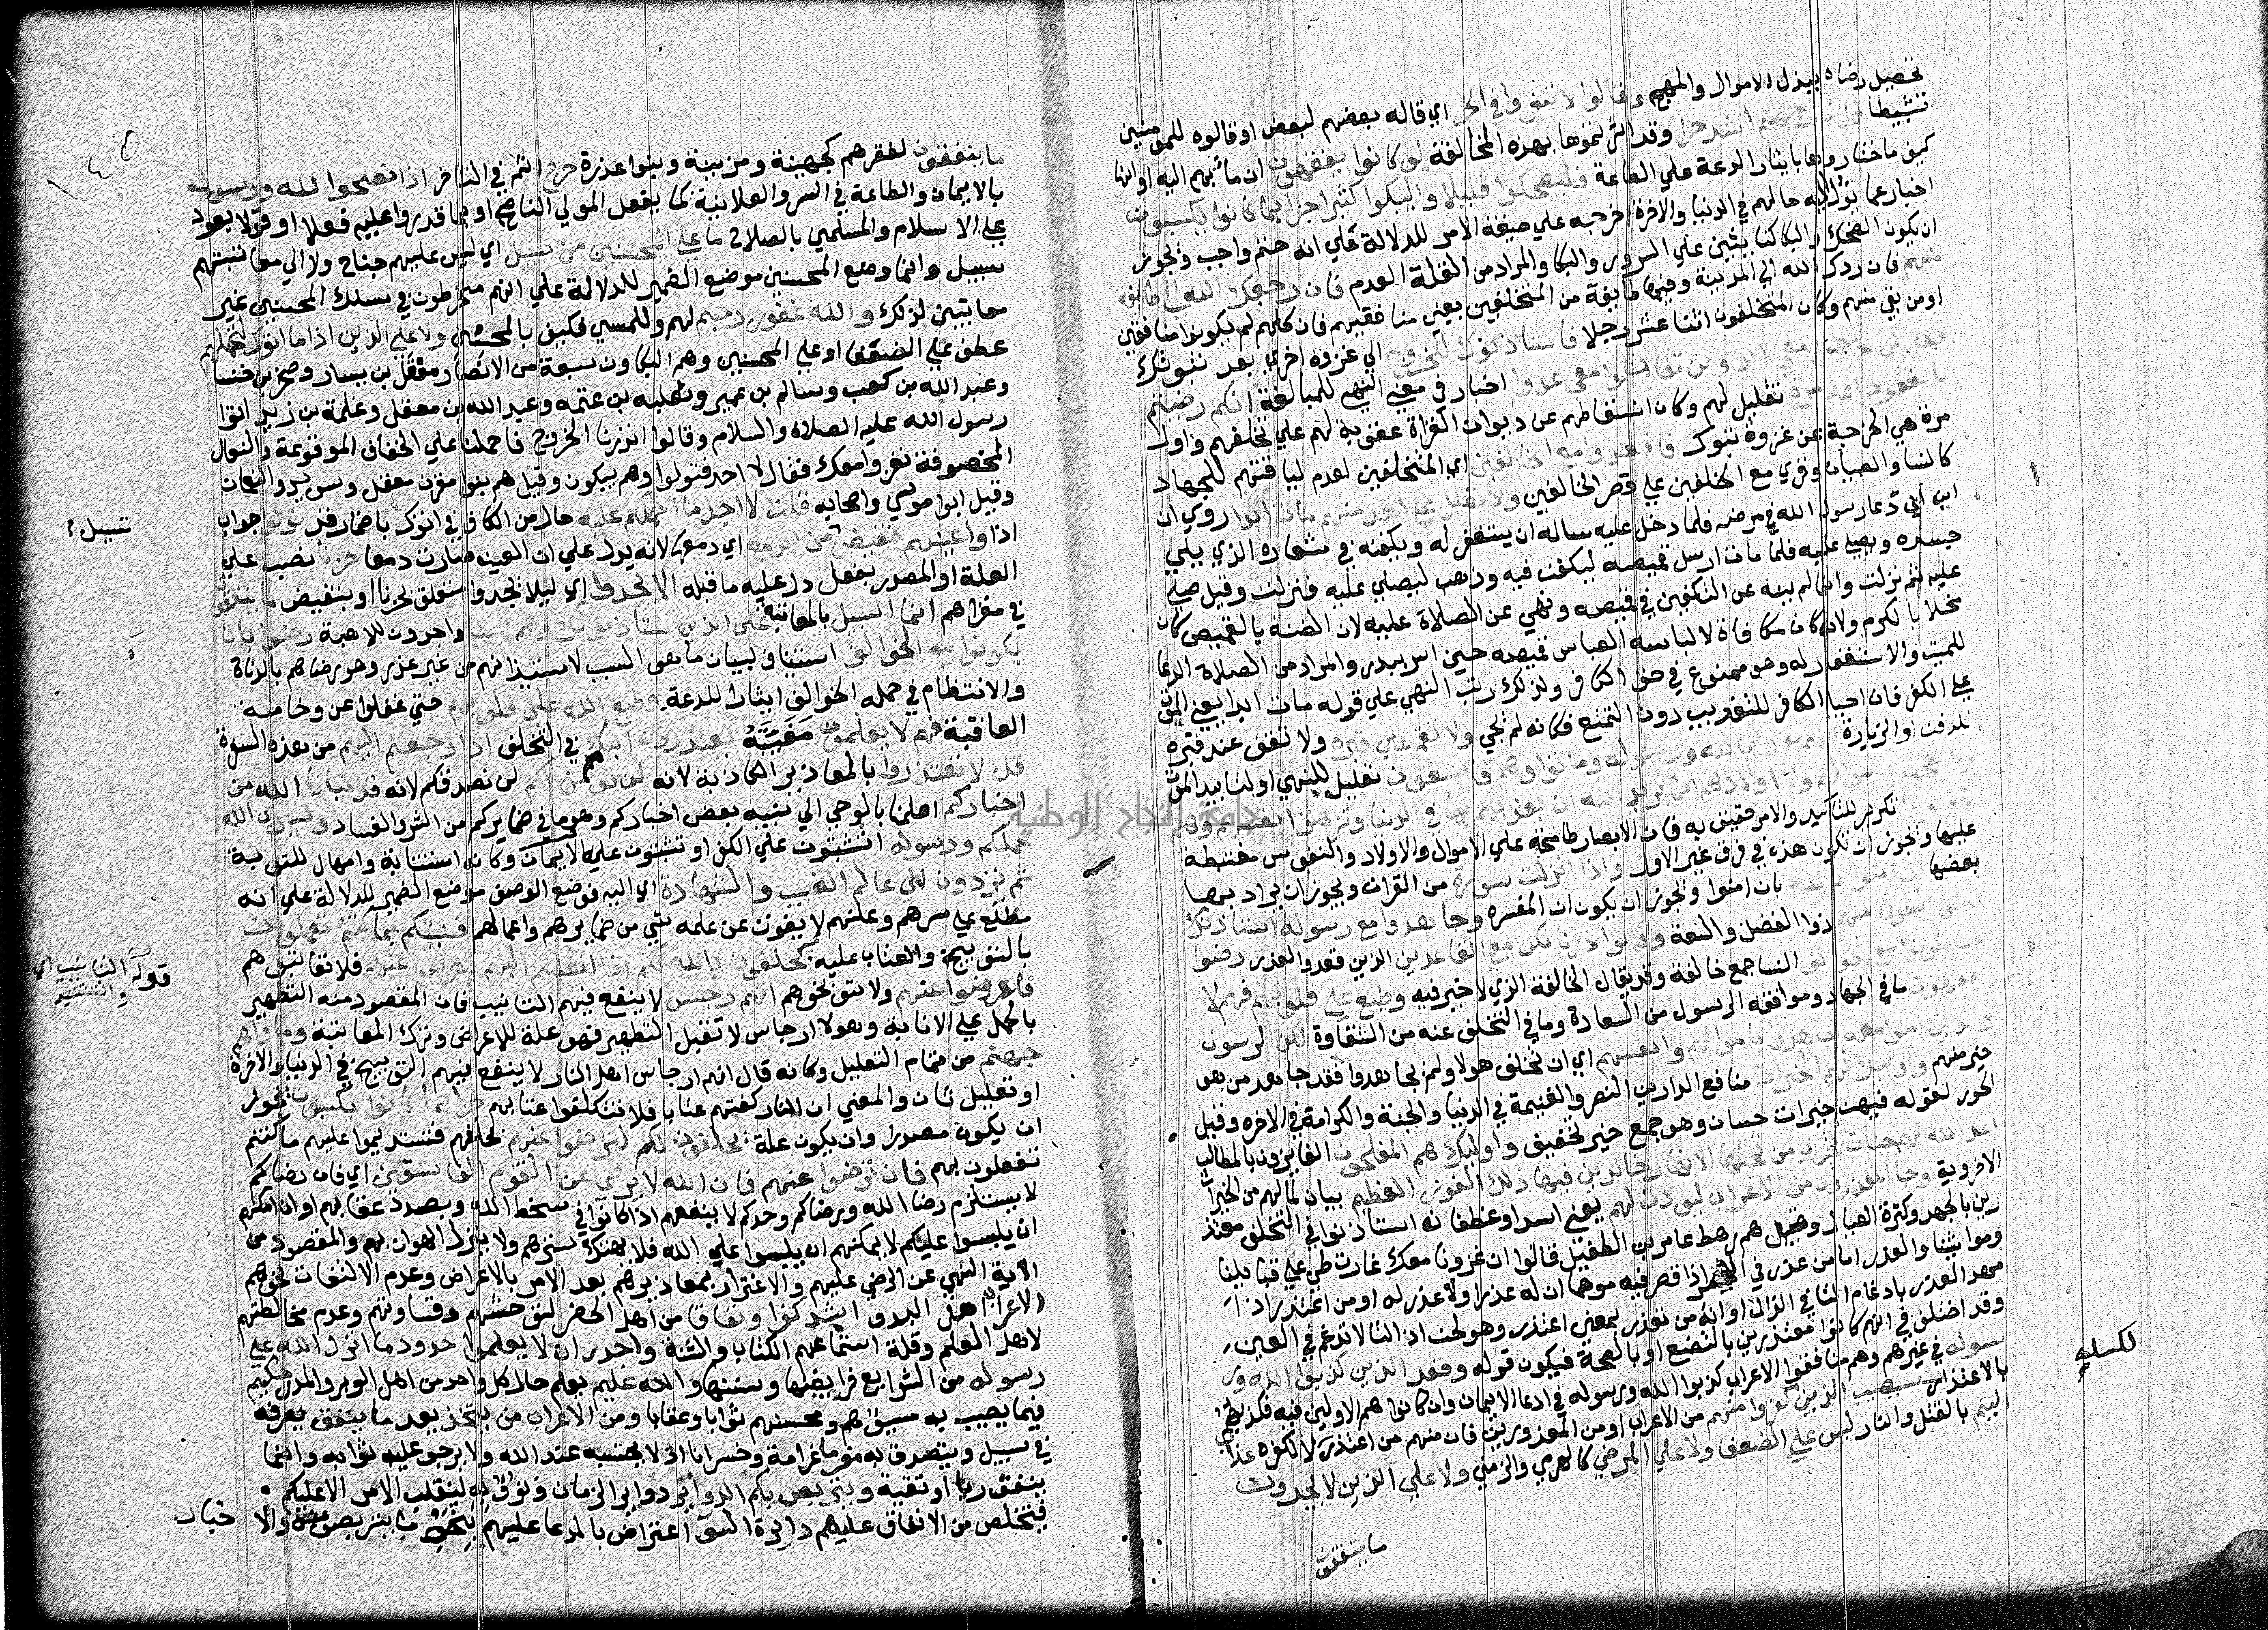 تحصيل رضاه ببذل الاموال والمهج وقالوا لا تنفروا في الحر اي قاله بعضهم لبعض او قالوه للمؤمنين
تثبيطا قل نار جهنم اشد حرا وقد اثرتموها بهذه المخالفة لو كانوا يفقهون ان مآبهم اليه او انها
كيف ما اختاروها بايثار الدعة علي الطاعة فليضحكوا قليلا وليبكوا كثيرا جزا بما كانوا يكسبون
اخبار عما يؤل اليه حالهم في الدنيا والاخرة اخرجه علي صيغة الامر للدلالة علي انه حتم واجب ويجوز
ان يكون الضحك والبكا كنايتين علي السرور والبكا والمراد من القلة العدم فان رجعك الله الي طايفة
منهم فان ردك الله الي المدينة وفيها طايفة من المتخلفين يعني منافقيهم فان كلهم لم يكونوا منافقين
او من بقي منهم وكان المتخلفون اثنا عشر رجلا فاستاذنوك للخروج الي غزوة اخري بعد تبوك
فقل لن تخرجوا معي ابدا ولن تقاتلوا معي عدوا اخبار في معني النهي للمبالغة انكم رضيتم
بالقعود اول مرة تعليل لهم وكان اسقاطهم عن ديوان الغزاة عقوبة لهم علي تخلفهم واول
مرة هي الخرجة عن غزوة تبوك فاقعدوا مع الخالفين اي المتخلفين لعدم لياقتهم للجهاد
كالنسا والصبيان وقري مع الخلفين علي قصر الخالفين ولا تصل علي احد منهم مات ابدا روي ان
ابن ابي دعا رسول الله في مرضه فلما دخل عليه ساله ان يستغفر له ويكفنه في شعاره الذي يلي
جسده ويصلي عليه فلما مات ارسل قميصه ليكفن فيه وذهب ليصلي عليه فنزلت وقيل صلي
عليه ثم نزلت وانما لم ينه عن التكفين في قميصه ونهي عن الصلاة عليه لان الضنة بالقميص كان
مخلا بالكرم ولانه كان مكافاة لالباسه العباس قميصه حين اسر ببدر والمراد من الصلاة الدعا
للميت والاستغفار له وهو ممنوع في حق الكافر ولذلك رتب النهي علي قوله مات ابدا يعني الموت
علي الكفر فان احيا الكافر للتعذيب دون التمتع فكانه لم يحي ولا تقم علي قبره ولا تقف عند قبره
للدفن او الزيارة انهم كفروا بالله ورسوله وماتوا وهم فاسقون تعليل للنهي او لتابيد الموت
ولا تعجبك اموالهم واولادهم انما يريد الله ان يعذبهم بها في الدنيا وتزهق انفسهم وهم
تكرير للتاكيد والامر حقيق به فان الابصار طامحة علي الاموال والاولاد والنفوس مغتبطة
عليها ويجوز ان تكون هذه في فرق غير الاول واذا انزلت سورة من القران ويجوز ان يراد بها
بعضها ان امنوا بالله بان امنوا ويجوز ان يكون ان المفسره وجاهدوا مع رسوله استاذنك
اولوا الطول منهم ذوا الفضل والسعة وقالوا ذرنا نكن مع القاعدين الذين قعدوا لعذر رضوا
بان يكونوا مع الخوالف النسا جمع خالفة وقد يقال الخالفة الذي لا خير فيه وطبع علي قلوبهم فهم لا
يفقهون ما في الجهاد وموافقة الرسول من السعادة وما في التخلف عنه من الشقاوة لكن الرسول
والذين امنوا معه جاهدوا باموالهم وانفسهم اي ان تخلف هولا ولم يجاهدوا فقد جاهد من هو
خير منهم واوليك لهم الخيرات منافع الدارين النصر والغنيمة في الدنيا والجنة والكرامة في الاخرة وقيل
الحور لقوله فيهن خيرات حسان وهو جمع خير تخفيف واوليك هم المفلحون الفايزون بالمطالب
اعد الله لهم جنات تجري من تحتها الانهار خالدين فيها ذلك الفوز العظيم بيان لما لهم من الخيرات
الاخروية وجا المعذرون من الاعراب ليوذن لهم يعني اسدا وغطفانه استاذنوا في التخلف معتذ
رين بالجهد وكثرة العيال وقيل هم رهط عامر بن الطفيل قالوا ان غزونا معك غارت طي علي قبايلنا
ومواشينا والعذر اما من عذر في الامر اذا قصر فيه موهما ان له عذرا ولا عذر له او من اعتذر اذا
مهد العذر بادغام التا في الذال او انه من تعذر بمعني اعتذر وهو لحن اذ التا لا تدغم في العين
وقد اختلف في انهم كانوا معتذرين بالتصنع او بالصحة فيكون قوله وقعد الذين كذبوا الله ور
سوله في غيرهم وهم منافقوا الاعراب كذبوا الله ورسوله في ادعا الايمان وان كانوا هم الاولين فيه فكذبهم
بالاعتذار سيصيب الذين كفروا منهم من الاعراب او من المعذورين فان منهم من اعتذر لا لكفره عذاب
اليم بالقتل والنار ليس علي الضعفا ولا علي المرضي كالهرمي والزمني ولا علي الذين لا يجدون
ما ينفقون
لكسله
ما ينفقون لفقرهم كجهينة ومزينة وبنوا عذرة حرج اثم في التاخر اذا نصحوا لله ورسوله
بالايمان والطاعة في السر والعلانية كما يفعل الموالي الناصح او بما قدروا عليه فعلا او قولا يعود
علي الاسلام والمسلمين بالصلاح ما علي المحسنين من سبيل اي ليس عليهم جناح ولا الي معاتبتهم
سبيل وانما وضع المحسنين موضع الضمير للدلالة علي انهم منخرطون في سلك المحسنين غير
معاتبين لذلك والله غفور رحيم لهم وللمسي فكيف بالمحسنين ولا علي الذين اذا ما اتوك لتحملهم
عطف علي الضعفا او علي المحسنين وهم البكاون سبعة من الانصار معقل بن يسار وصخر بن خنسا
وعبد الله بن كعب وسالم بن عمير وثعلبه بن عتمه وعبد الله بن معقل وعلمة بن زيد اتوا
رسول الله عليه الصلاة والسلام وقالوا نذرنا الخروج فاحملنا علي الخفاف المرقوعة والنعال
المخصوفة نغزوا معك فقال لا اجد فتولوا وهم يبكون وقيل هم بنوا مقرن معقل وسويد والنعمان
وقيل ابوا موسي واصحابه قلت لا اجد ما احملكم عليه حال من الكاف في اتوك باضمار قد تولوا جواب
اذا واعينهم تفيض من الدمع اي دمعها لانه يدل علي ان العين صارت دمعا حزنا نصب علي
العلة او المصدر بفعل دل عليه ما قبله الا يجدوا اي ليلا يجدوا متعلق بحزنا او بتفيض ما ينفقون
في مغزاهم انما السبيل بالمعاتبة علي الذين يستاذنونك وهم اغنيا واجدون للاهبة رضوا بان
يكونوا مع الخوالف استيناف لبيان ما هو السبب لاستيذانهم من غير عذر وهو رضاهم بالدناة
والانتظام في جمله الخوالف ايثارا للدعة وطبع الله علي قلوبهم حتي غفلوا عن وخامه
العاقبة فهم لا يعلمون مغبته يعتذرون اليكم في التخلف اذا رجعتم اليهم من هذه السفرة
قل لا تعتذروا بالمعاذير الكاذبة لانه لن نومن لكم لن نصدقكم لانه قد نبانا الله من
اخباركم اعلمنا بالوحي الي نبيه بعض اخباركم وهو ما في ضمايركم من الشر والفساد وسيري الله
عملكم ورسوله اتثبتون علي الكفر او تثبتون علي الايمان وكانه استتابة وامهال للتوبة
ثم تردون الي عالم الغيب والشهادة اي اليه فوضع الوصف موضع الضمير للدلالة علي انه
مطلع علي سرهم وعلنهم لا يفوت عن علمه شي من ضمايرهم واعمالهم فينبيكم بما كنتم تعملون
بالتوبيخ والعقاب عليه سيحلفون بالله لكم اذا انقلبتم اليهم لتعرضوا عنهم فلا تعاتبوهم
فاعرضوا عنهم ولا توبخوهم انهم رجس لا ينفع فيهم التانيب فان المقصود منه التطهير
بالحمل علي الانابة وهولا ارجاس لا تقبل التطهير فهو علة للاعراض وترك المعاتبة وماواهم
جهنم من تمام التعليل وكانه قال انهم ارجاس اهل النار لا ينفع فيهم التوبيخ في الدنيا والاخرة
او تعليل ثان والمعني ان النار كفتهم عتابا فلا تتكلفوا عتابهم جزا بما كانوا يكسبون يجوز
ان يكون مصدرا وان يكون علة يحلفون لكم لترضوا عنهم بحلفهم فتستديموا عليهم ما كنتم
تفعلون بهم فان ترضوا عنهم فان الله لا يرضي عن القوم الفاسقين اي فان رضاكم
لا يستلزم رضا الله ورضاكم وحدكم لا ينفعهم اذا كانوا في سخط الله وبصدد عقابهم او ان امكنهم
ان يلبسوا عليكم لا يمكنهم ان يلبسوا علي الله فلا يهتك سترهم ولا ينزل الهوان بهم والمقصود من
الاية النهي عن الرضي عليهم والاغترار بمعاذيرهم بعد الامر بالاعراض وعدم الالتفات نحوهم
الاعراب اهل البدو اشد كفرا ونفاقا من اهل الحضر لتوحشهم وقساوتهم وعدم مخالطتهم
لاهل العلم وقلة استماعهم الكتاب والسنة واجدر ان لا يعلموا حدود ما انزل الله علي
رسوله من الشرايع فرايضها وسننها والله عليم يعلم حال كل واحد من اهل الوبر والمدر حكيم
فيما يصيب به مسيهم ومحسنهم ثوابا وعقابا ومن الاعراب من يتخذ يعد ما ينفق يصرفه
في سبيل ويتصدق به مغرما غرامة وخسرانا اذ لا يحتسبه عند الله ولا يرجو عليه ثوابه وانما
ينفق ريا او تقية ويتربص بكم الدواير دواير الزمان ونوبه لينقلب الامر الا عليكم
فيتخلص من الانفاق عليهم دايرة السو اعتراض بالدعا عليهم بنحو ما يتربصون والا خبار
سبيل
قوله التانيب اي
جامعة النجاح الوطنية